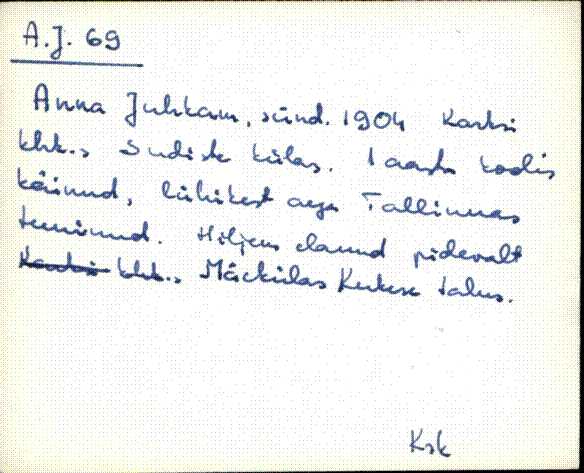 A.J. 69
Anna Juhkam, sünd. 1904 Karksi
khk., Sudiste külas. 1 aasta koolis
käinud, lühikest aega Tallinnas
teeninud. Hiljem elanud pidevalt
Karksi khk., Mäeküla Kukse talus.
Ksk